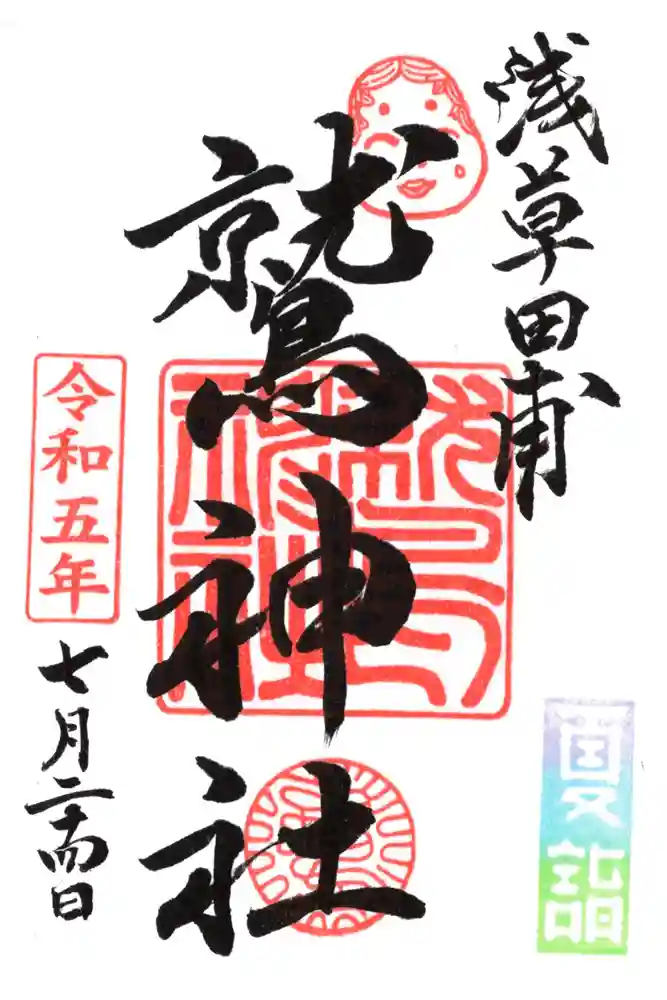 浅草田甫
鷲神社
令和五年
七月二十四日
夏詣